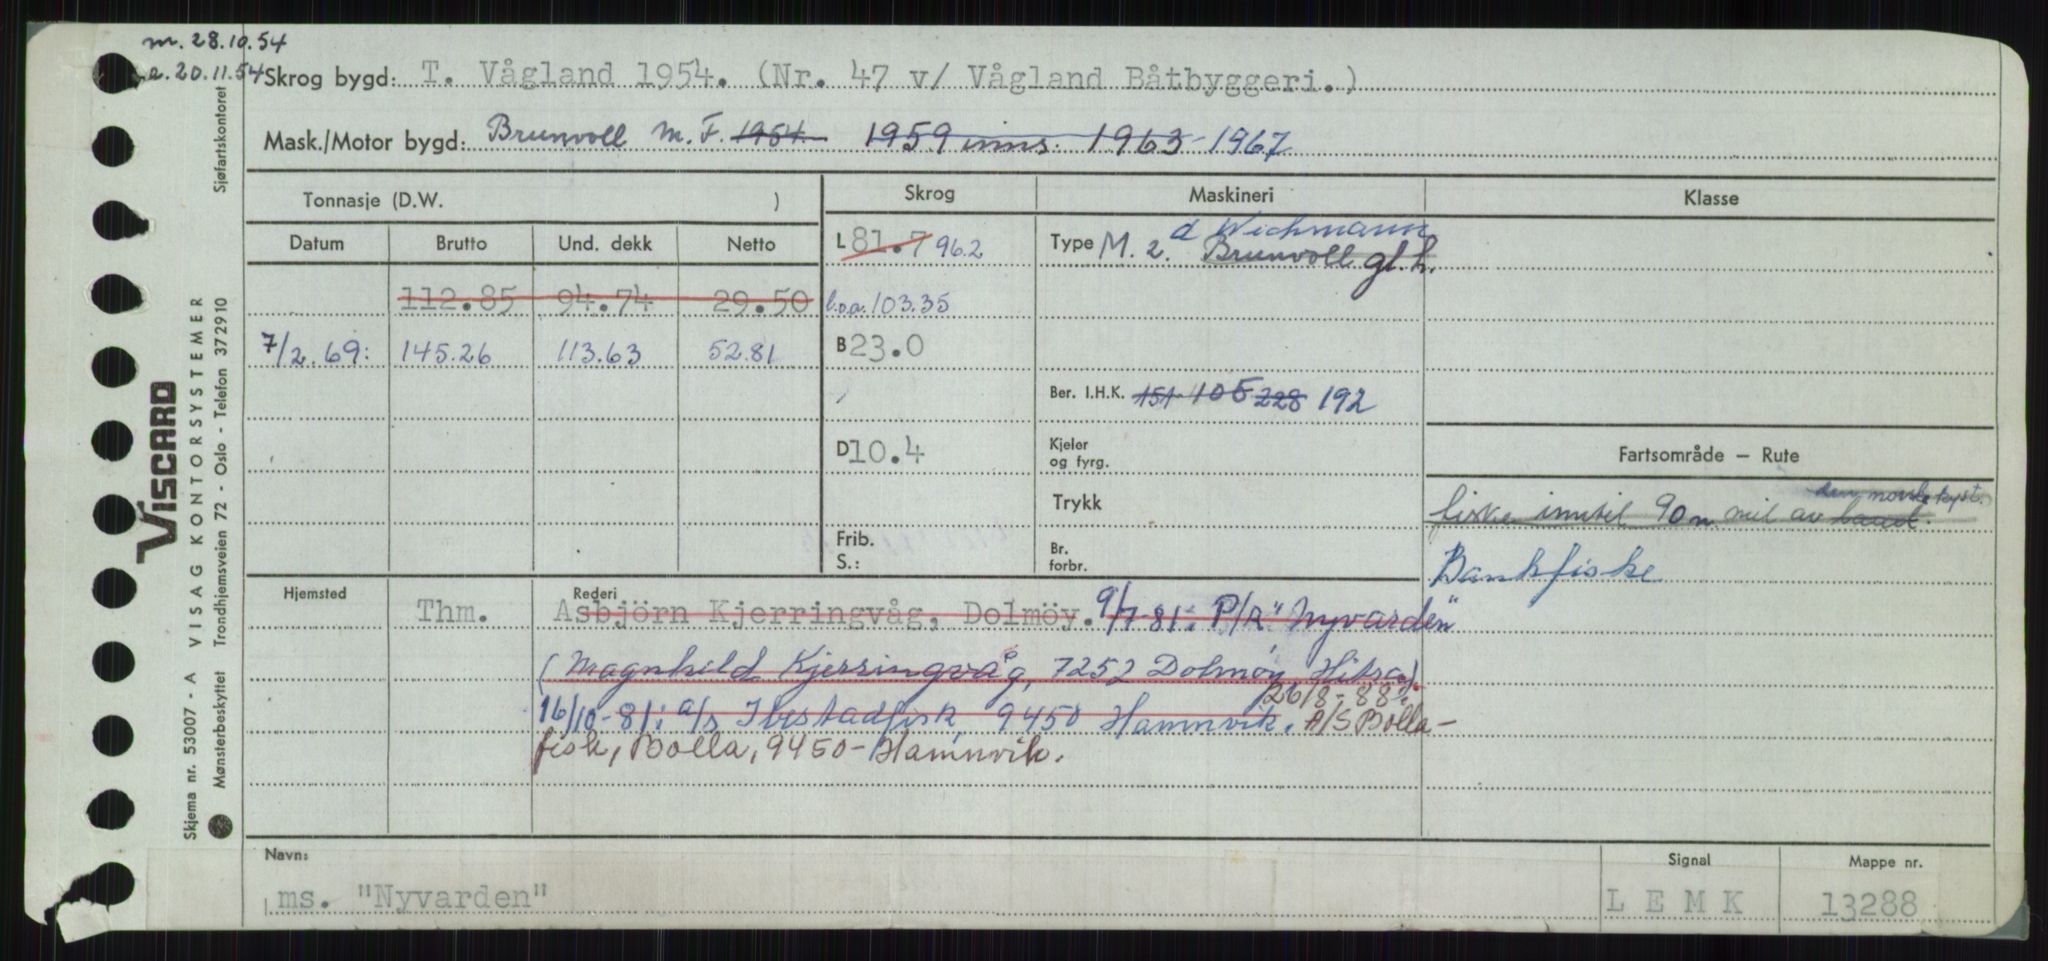 m. 28.10.54
e. 20.11.54
Skrog bygd: T. Vågland 1954. (Nr. 47 v/ Vågland Båtbyggeri.)
Mask./Motor bygd: Brunvoll M.F. 1954 1959 inns. 1963-1967
Tonnasje (D.W. )
Skrog
Maskineri
Klasse
Datum Brutto Und. dekk Netto
L 81.7 96.2
Type M. 2. d Wichmann
Brunvoll gl.h.
112.85 94.74 29.50
l.o.a. 103.35
7/2.69: 145.26 113.63 52.81
B 23.0
Ber. I.H.K. 151 105 228 192
D 10.4
Kjeler
og fyrg.
Trykk
Frib.
S.:
Br.
forbr.
Fartsområde — Rute
den norske kyst.
fiske inntil 90 n. mil av land.
Bankfiske
Hjemsted
Thm.
Rederi
Asbjörn Kjerringvåg, Dolmöy. 9/7-81: P/R "Nyvarden"
(Magnhild Kjerringvåg, 7252 Dolmöy, Hitra).
26/8-88:
16/10-81: a/s Ibestadfisk, 9450 Hamnvik. A/S Bolla-
fisk, Bolla, 9450-Hamnvik.
Navn:
ms. "Nyvarden"
Signal
L E M K
Mappe nr.
13288
VISCARD
Skjema nr. 53007 - A VISAG KONTORSYSTEMER
Mønsterbeskyttet Trondhjemsveien 72 - Oslo - Telefon 372910 Sjøfartskontoret